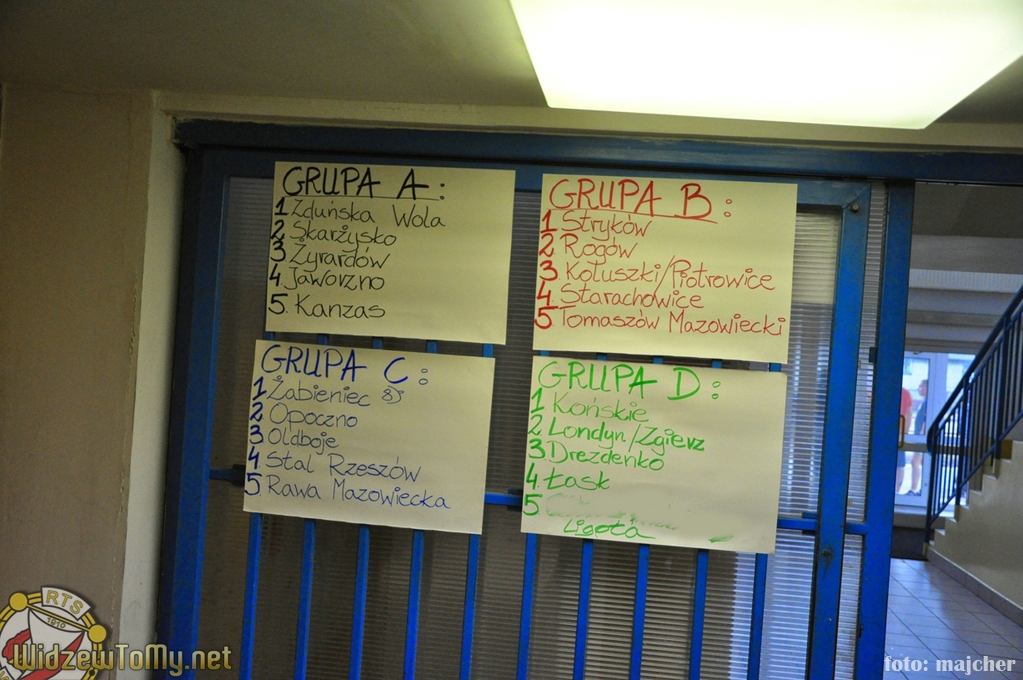 GRUPA A:
1 Zduńska Wola
2 Skarżysko
3 Żyrardów
4 Jaworzno
5. Kanzas
GRUPA B:
1 Stryków
2 Rogów
3 Koluszki/Piotrowice
4 Starachowice
5 Tomaszów Mazowiecki
GRUPA C:
1 Żabieniec 8)
2 Opoczno
3 Oldboje
4 Stal Rzeszów
5 Rawa Mazowiecka
GRUPA D:
1 Końskie
2 Londyn/Zgierz
3 Drezdenko
4 Łask
5
Ligota
RTS
1910
WidzewToMy.net
foto: majcher